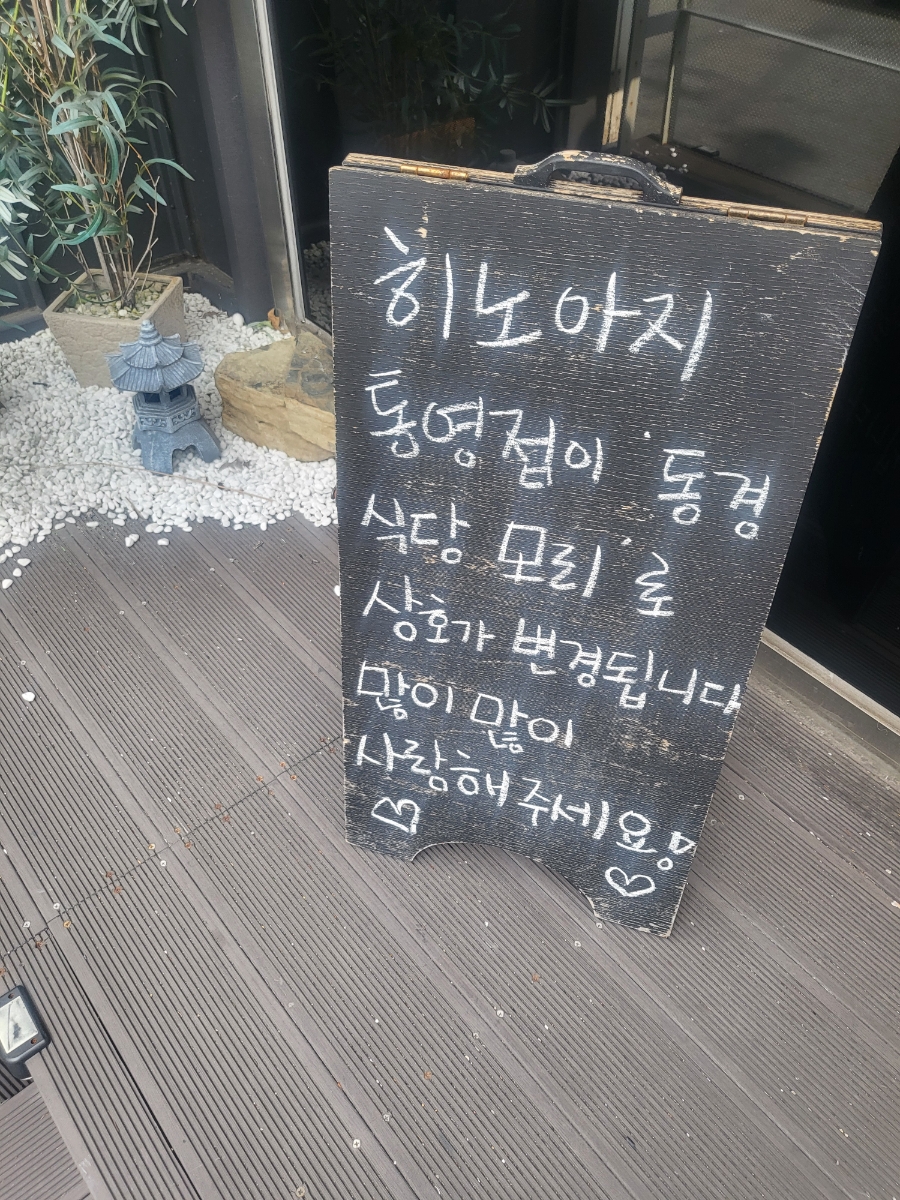 히노아지
통영점이 '동경
식당 모리'로
상호가 변경됩니다
많이 많이
사랑해 주세요!
♡ ♡